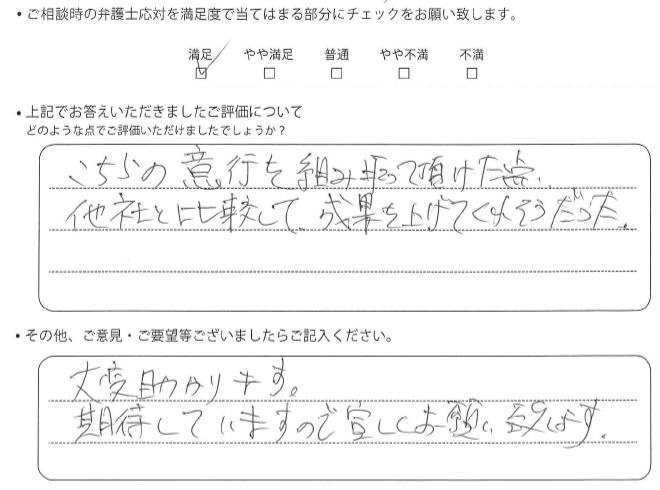 ・ご相談時の弁護士応対を満足度で当てはまる部分にチェックをお願い致します。
満足 やや満足 普通 やや不満 不満
・上記でお答えいただきましたご評価について
どのような点でご評価いただけましたでしょうか？
こちらの意行を組み取って頂けた点、
他社と比較して、成果を上げてくれそうだった。
・その他、ご意見・ご要望等ございましたらご記入ください。
大変助かります。
期待していますので宜しくお願い致します。